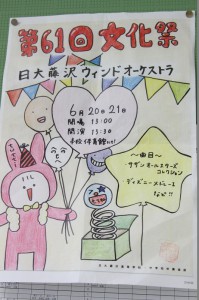 第61回 文化祭
日大藤沢ウィンドオーケストラ
6月20日21日
開場 13:00
開演 13:30
〜曲目〜
サザンオールスターズ
コレクション
ディズニーメドレー
など!!